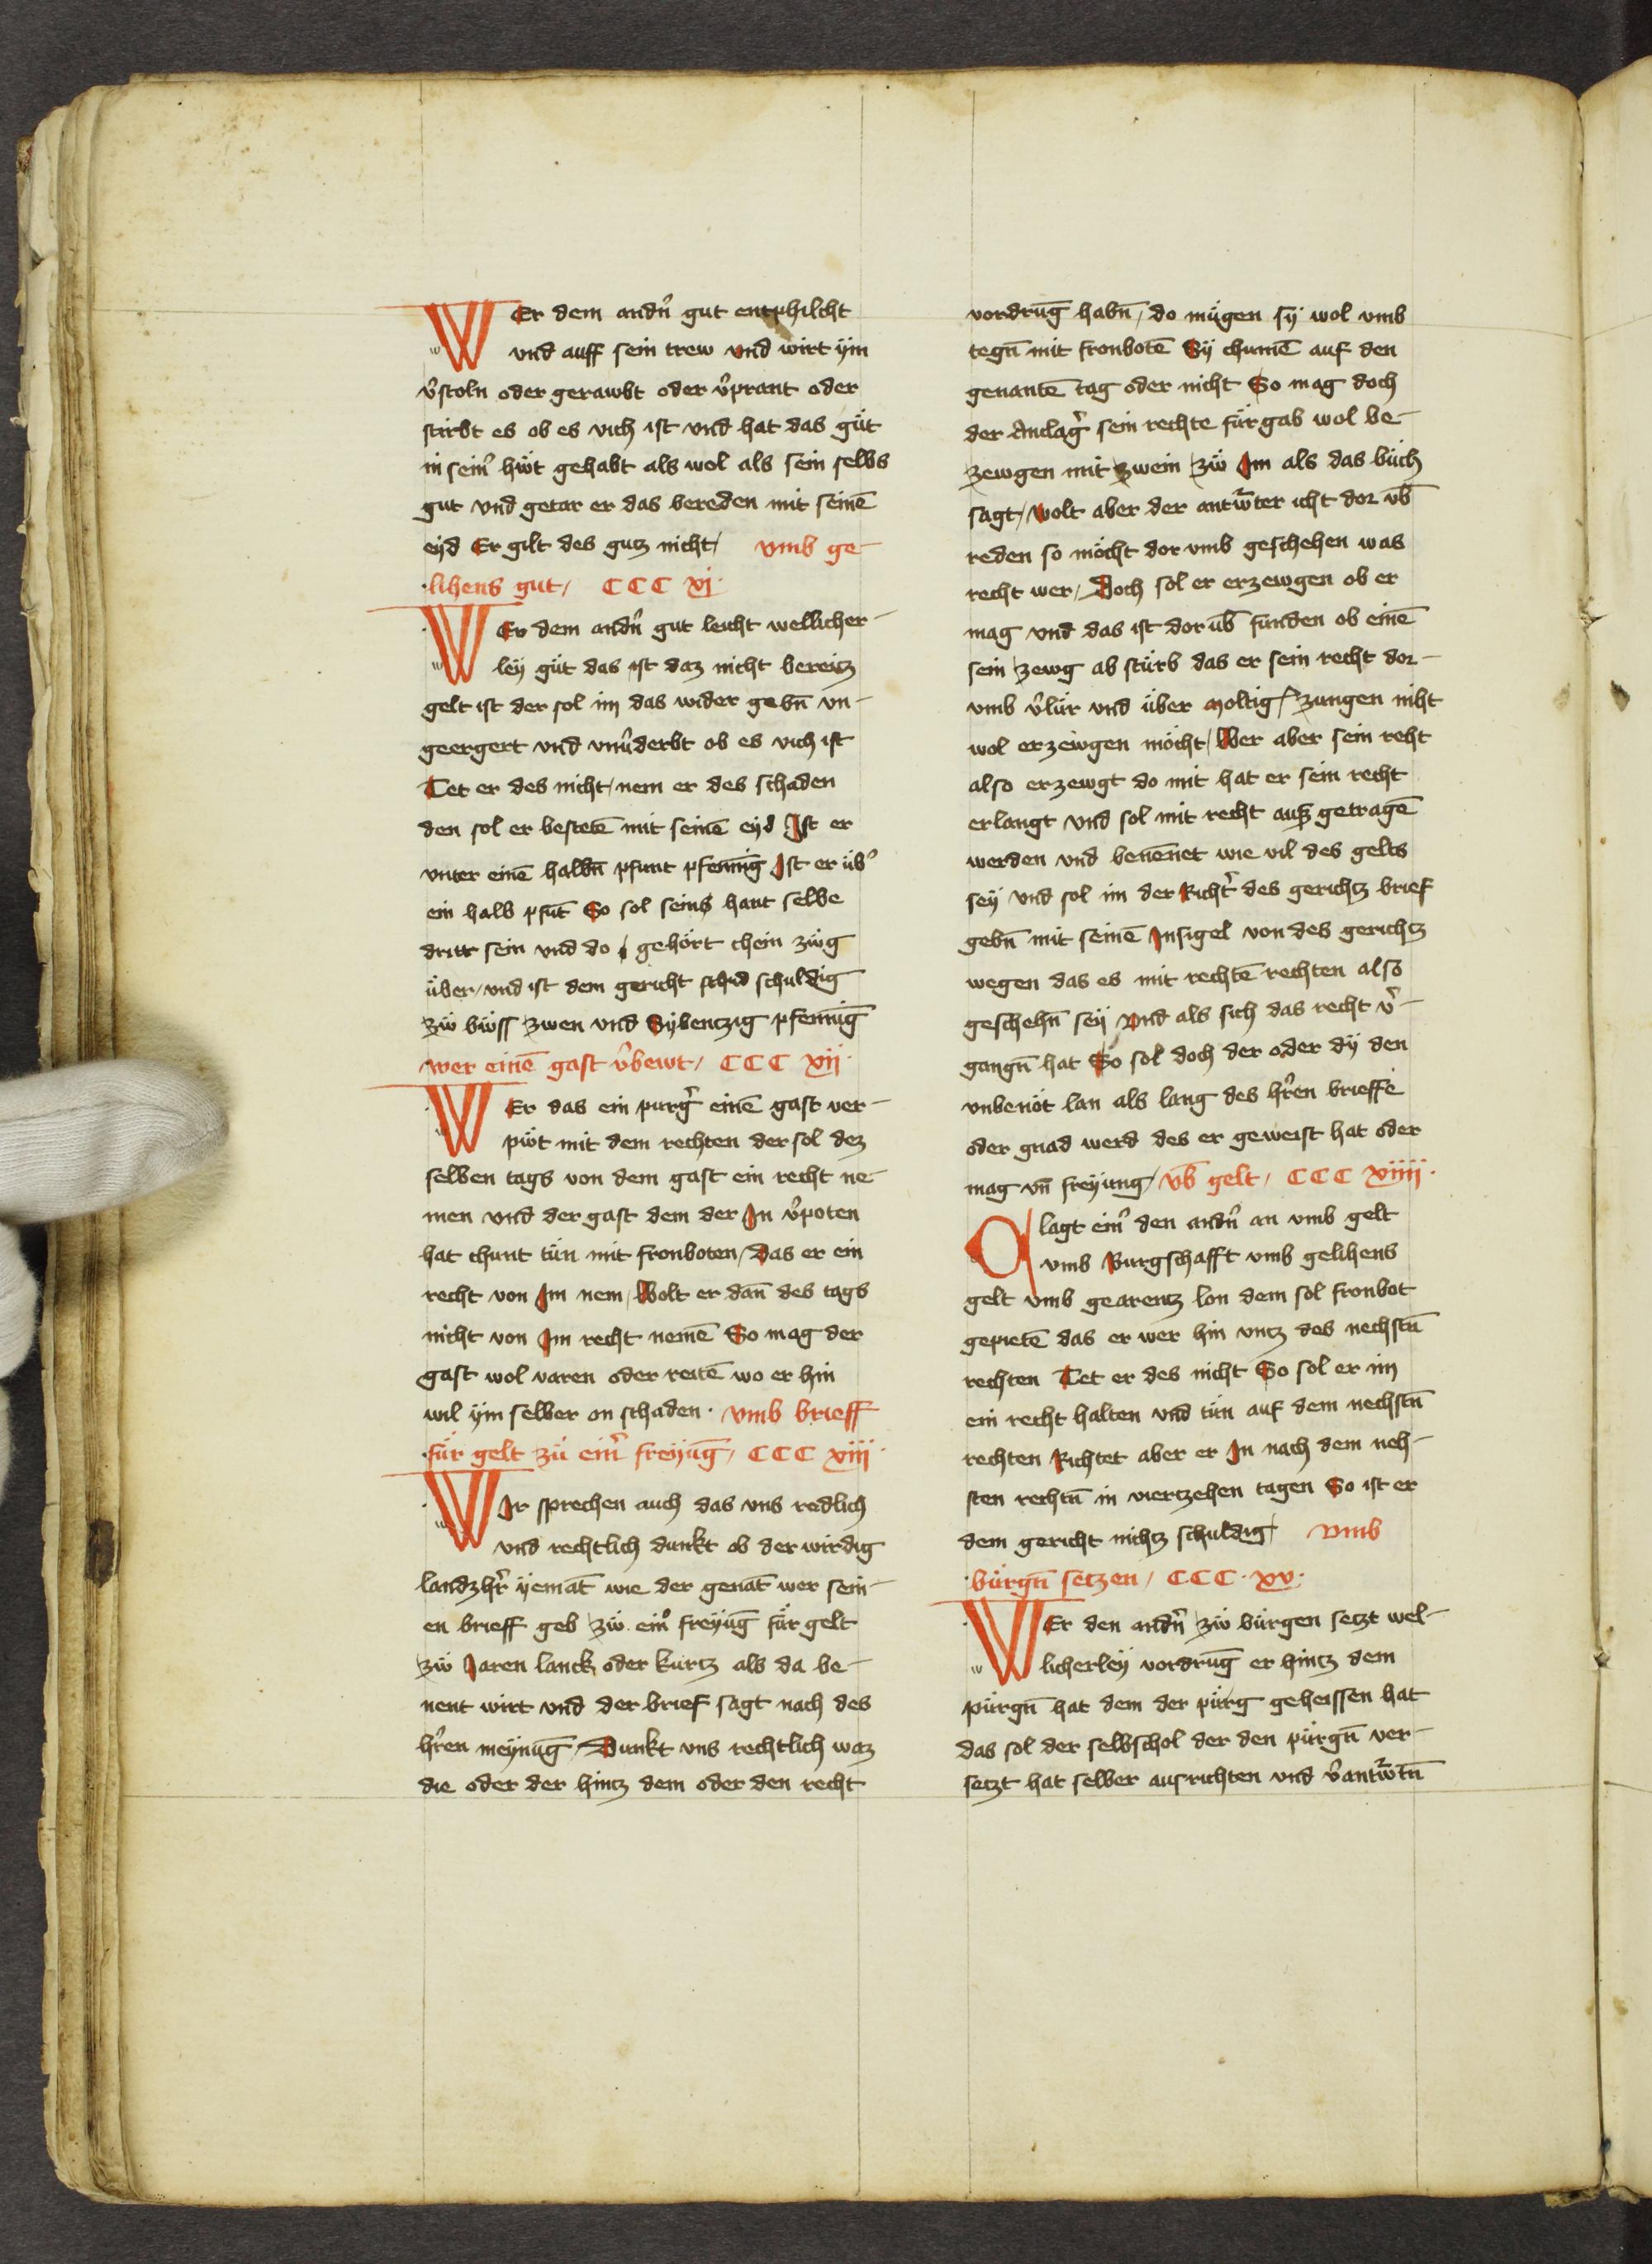 WEr dem andn̄ gut entphilcht
vnd auff sein trew vnd wirt ÿm
v̉stoln oder gerawbt oder v̉prant oder
stirbt es ob es vich ist vnd hat das gůt
in sein̉ hẅt gehabt als wol als sein selbs
gut vnd getar er das bereden mit seinē
eÿd Er gilt des gutz nicht / vmb ge-
lihens gut / CCC xj ·
WEr dem andn̄ gut leicht wellicher-
leÿ gůt das ist daz nicht bereitz
gelt ist der sol im das wider gebn̄ vn-
geergert vnd vnủderbt ob es vich ist
Tet er des nicht / nem er des schaden
den sol er bestetē mit seinē eÿd Ist er
vnter einē halbn̄ pfunt pfennīg Ist er übˀ
ein halb pfūt So sol seins hant selbe
dritt sein vnd do gehört chein zẅg
über / vnd ist dem gericht schuldig
zẅ bẅss zwen vnd Sÿbentzig pfennīg
wer einē gast v̉bewt / CCC xij ·
WEr das ein purg̉ einē gast ver-
pẅt mit dem rechten der sol dez
selben tags von dem gast ein recht ne-
men vnd der gast dem der In v̉poten
hat chunt tün mit fronboten / Das er ein
recht von Im nem / Wolt er dan̄ des tags
nicht von Im recht nemē So mag der
gast wol varen oder reitē wo er hin
wil ÿm selber on schaden · vmb brieff
für gelt zů ein̉ freÿūg / CCC xiij ·
WIr sprechen auch das vns redlich
vnd rechtlich dunkt ob der wirdig
landzhr̉ ÿemāt wie der genāt wer sein-
en brieff geb zẅ ein̉ freÿūg für gelt
zẅ Jaren lanck oder kurtz als da be-
nent wirt vnd der brief sagt nach des
hr̉en meÿnūg / Dunkt vns rechtlich waz
die oder der hintz dem oder den recht
vordrūg habn̄ / do mügen sÿ wol vmb
tegn̄ mit fronbotē Sÿ chumē auf den
genantē tag oder nicht So mag doch
der Anclag̉ sein rechte für gab wol be-
zewgen mit zwein zẅ Im als das bůch
sagt / Wolt aber der antw̄ter icht dor vb̄
reden so möcht dor vmb geschehen was
recht wer / Doch sol er erzewgen ob er
mag vnd das ist dor ub̄ funden ob einē
sein zewg ab stürb das er sein recht dor-
vmb v̉lür vnd über moltig / zungen niht
wol erzewgen möcht / Wer aber sein reht
also erzewgt do mit hat er sein recht
erlangt vnd sol mit recht auß getragē
werden vnd benēnet wie vil des gelts
seÿ vnd sol im der Richt̉ des gerichtz brief
gebn̄ mit seinē Insigel von des gerichtz
wegen das es mit rechtē rechten also
geschehn̄ seÿ Vnd als sich das recht v̉-
gangn̄ hat So sol doch der oder dÿ den
vnbenöt lan als lang des hr̉en brieffe
oder gnad werd des er geweist hat oder
mag vn̄ freÿung / vb̄ gelt / CCC xiiij ·
Clagt ein̉ den andn̄ an vmb gelt
vmb Burgschafft vmb gelihens
gelt vmb gearentz lon dem sol fronbot
gepietē das er wer hin vntz des nechstn̄
rechten Tet er des nicht So sol er im
ein recht halten vnd tün auf dem nechstn̄
rechten Richtet aber er In nach dem neh-
sten rechtn̄ in viertzehen tagen So ist er
dem gericht nichtz schuldig / vmb
bürgn̄ setzen / CCC · xv ·
WEr den andn̄ zẅ bürgen setzt wel-
licherleÿ vordrūg er hintz dem
pürgn̄ hat dem der pürg geheissen hat
das sol der selbschol der den pürgn̄ ver-
setzt hat selber ausrichten vnd v̉antw̄tn̄